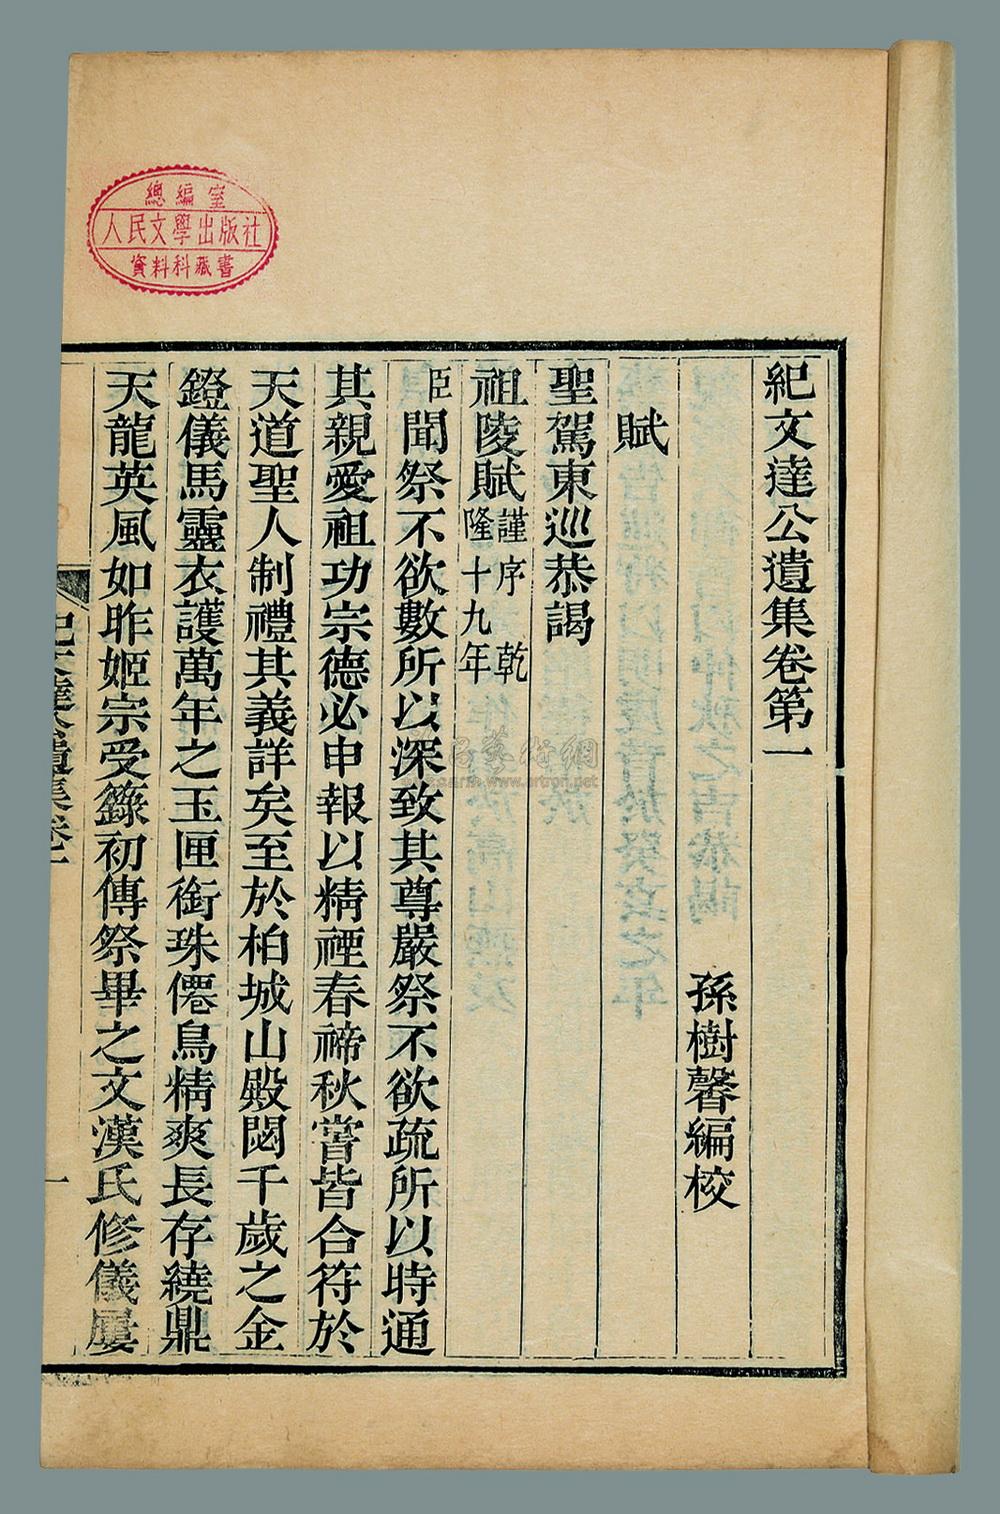 總編室
人民文學出版社
資料科藏書
紀文達公遺集卷第一
孫樹馨編校
賦
聖駕東巡恭謁
祖陵賦謹序 乾隆十九年
臣聞祭不欲數所以深致其尊嚴祭不欲疏所以時通
其親愛祖功宗德必申報以精禋春禘秋嘗皆合符於
天道聖人制禮其義詳矣至於柏城山殿閟千歲之金
鐙儀馬靈衣護萬年之玉匣銜珠僊鳥精爽長存繞鼎
天龍英風如昨姬宗受籙初傳祭畢之文漢氏修儀屢
紀文達公遺集卷一
一